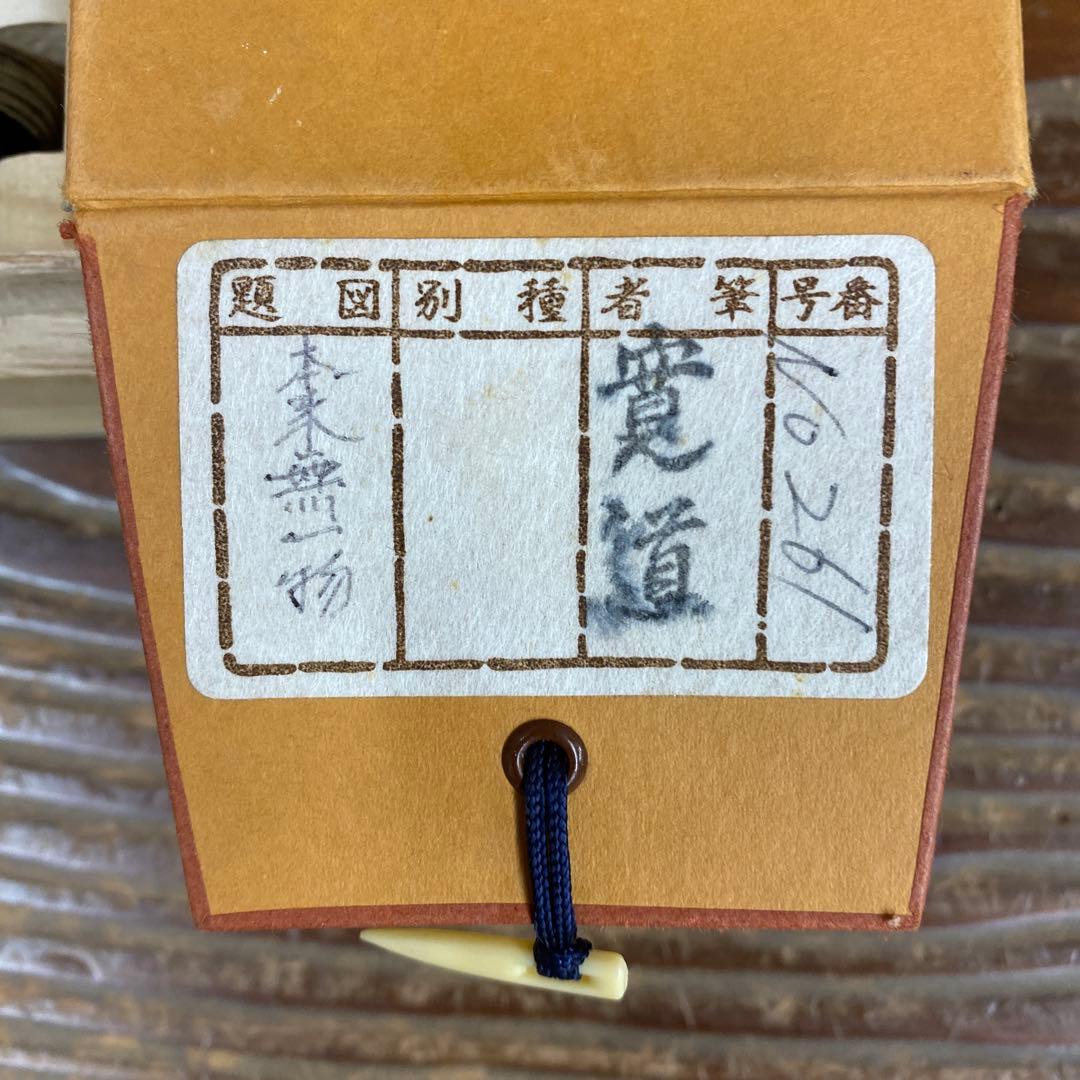 番号
No 261
筆者
寛道
種別
図題
本来無一物